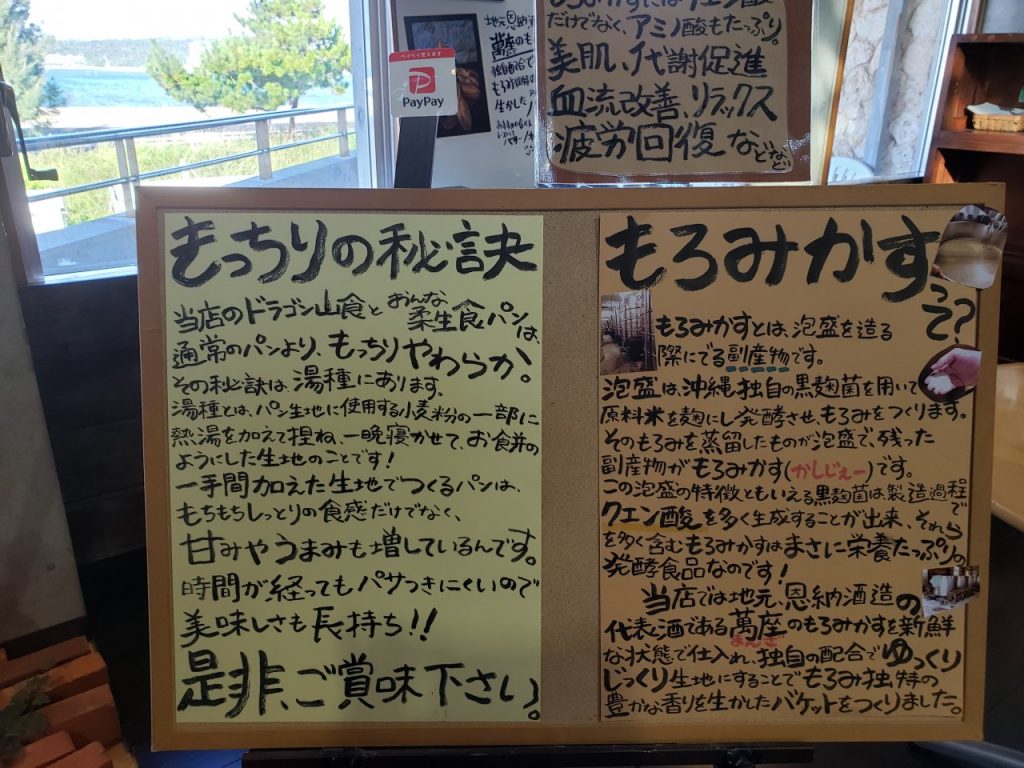 ペイペイ使えます
PayPay
地元恩納酒
萬座のも
独自配合で
もろみ独特の
生かした
だけでなく、アミノ酸もたっぷり。
美肌、代謝促進
血流改善、リラックス
疲労回復などなど
もっちりの秘訣
当店のドラゴン山食と柔生食パンは、
おんな
通常のパンより、もっちりやわらか。
その秘訣は湯種にあります。
湯種とは、パン生地に使用する小麦粉の一部に
熱湯を加えて捏ね、一晩寝かせて、お餅の
ようにした生地のことです!
一手間加えた生地でつくるパンは、
もちもちしっとりの食感だけでなく、
甘みやうまみも増しているんです。
時間が経ってもパサつきにくいので
美味しさも長持ち!!
是非、ご賞味下さい。
もろみかすって?
もろみかすとは、泡盛を造る
際にでる副産物です。
泡盛は沖縄独自の黒麹菌を用いて
原料米を麹にし発酵させ、もろみをつくります。
そのもろみを蒸留したものが泡盛で、残った
副産物がもろみかす(かしじぇー)です。
この泡盛の特徴ともいえる黒麹菌は製造過程で
クエン酸を多く生成することが出来、それら
を多く含むもろみかすはまさに栄養たっぷり。
発酵食品なのです!
当店では地元、恩納酒造の
代表酒である萬座のもろみかすを新鮮
まんざ
な状態で仕入れ、独自の配合でゆっくり
じっくり生地にすることでもろみ独特の
豊かな香りを生かしたバケットをつくりました。